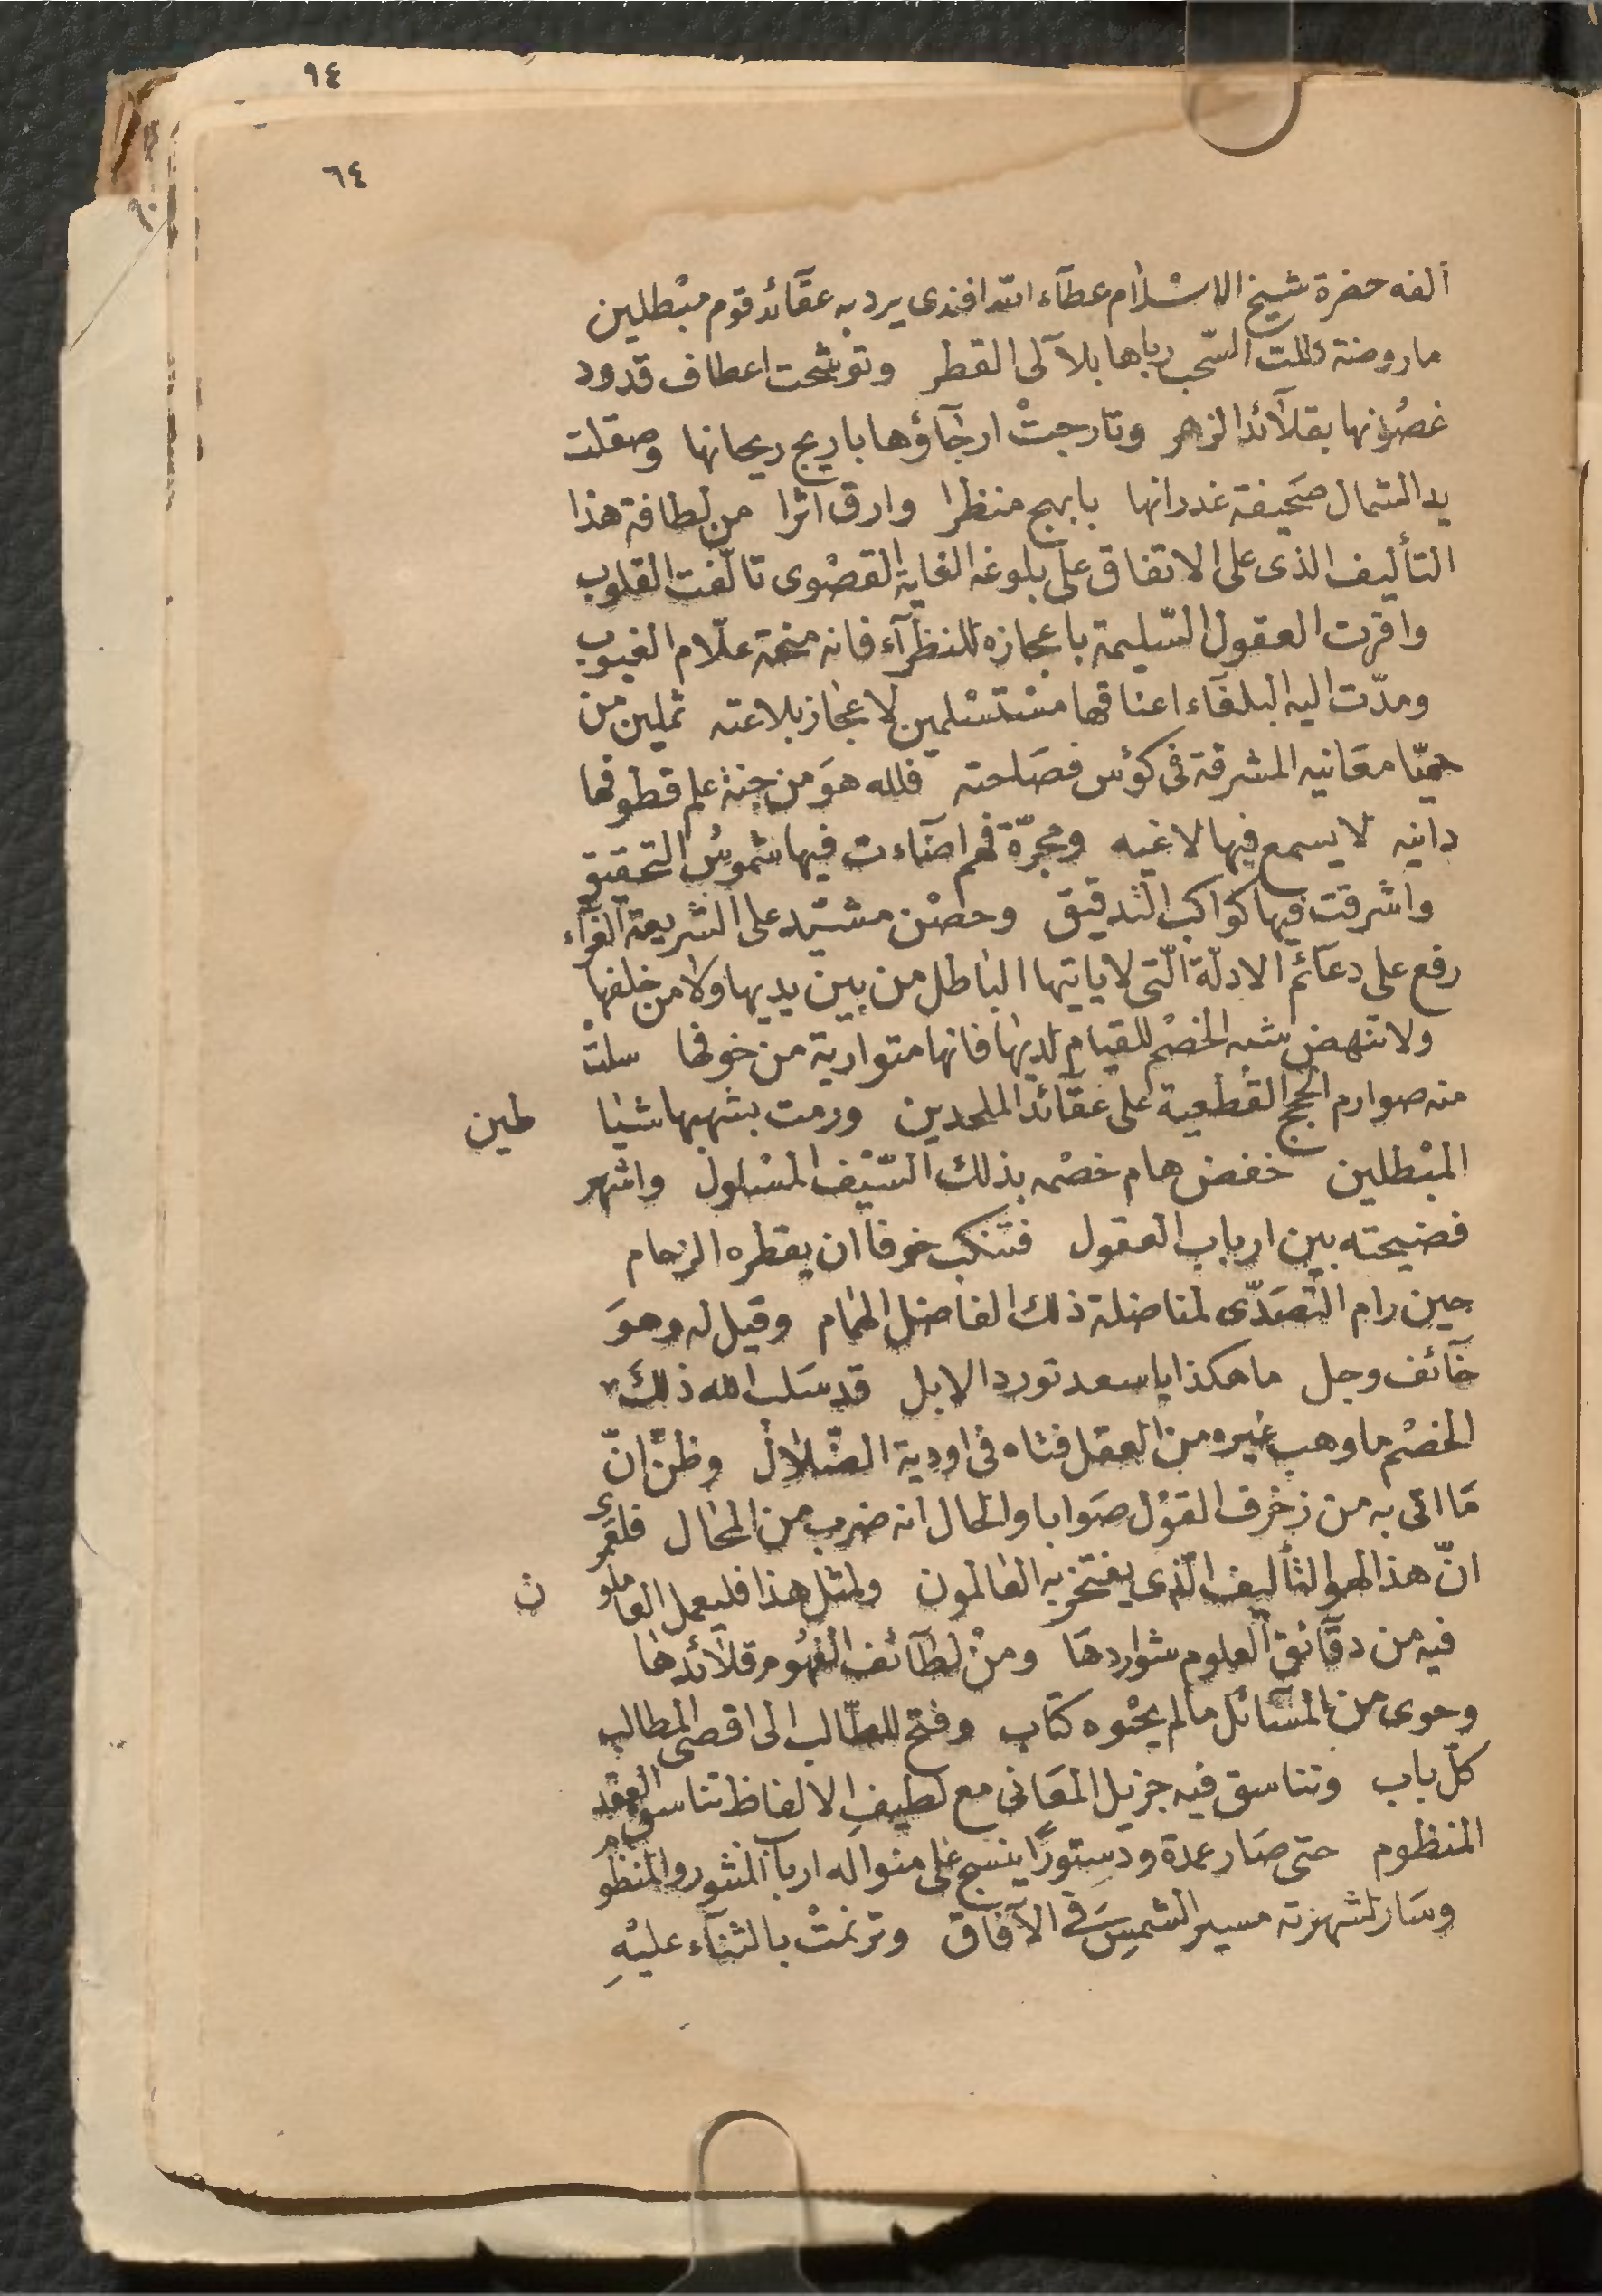 ٩٤
٦٤
ألفه حضرة شيخ الاسْلام عطآء الله افندى يرد به عقآئد قوم مبْطلين
ما روضة كللت السّحب رباها بلآلى القطر وتوشحت اعطاف قدود
غصُونها بقلآئد الزهر وتارجتْ ارجآؤها باريج ريحانها وصقلت
يد الشمال صَحيفة غدرانها بابهج منظرا وارق اثرا من لطافة هذا
التأليف الذى على الاتفاق على بلوغه الغاية القصْوى تالّفت القلوب
واقرت العقول السّليمة باعجازه للنظرآء فانه منحة علّام الغيوب
ومدّت اليه البلغآء اعناقها مسْتسْلمين لاعجاز بلاغته ثملين من
حميّا معَانيه المشرقة فى كؤس فصَاحته فلله هوَ من جنة علم قطوفها
دانيه لا يسمع فيها لاغيه ومجرّة فهم اضآءت فيها شموسُ التحقيق
واشرقت فيها كواكب التدقيق وحصْن مشيّد على الشريعة الغرّآء
رفع على دعآئم الادلّة الّتى لا ياتيها الباطل من بين يديها ولا من خلفها
ولا تنهض شبه الخصْم للقيام لديها فانها متوارية من خوفها سلتْ
منه صوارم الحجج القطعية على عقآئد الملحدين ورمت بشهبها شيا طين
المبْطلين خفض هام خصْمه بذلك السّيْف المسْلول واشهر
فضيحته بين ارباب العقول فتنكب خوفا ان يقطره الزحام
حين رام التّصَدّى لمناضلة ذلك الفاضل الهمام وقيل له وهوَ
خآئف وجل ما هكذا يا سعد تورد الابل قد سَلب الله ذلك
الخصْم ما وهب غيره من العقل فتاه فى اودية الضّلال وظنّ انّ
مَا اتى به من زخرف القوْل صَوابا والحال انه ضرب من المحال فلعَمرى
انّ هذا لهو التأليف الّذى يفتخر به العَالمون ولمثل هذا فليعمل العاملو ن
فيه من دقآئق العلوم شواردهَا ومنْ لطآئف الفهُوم قلآئدها
وحوى من المسَآئل ما لم يحْوه كتاب وفتح للطّالب الى اقصى المطالب
كلّ باب وتناسق فيه جزيل المعَانى مع لطيفِ الالفاظ تناسق العقد
المنظوم حتى صَار عمدة ودستورًا ينسج على منواله ارباب المنثور والمنظوم
وسَار لشهرته مسير الشمسِ فَى الآفاق وترنمتْ بالثنآء عليْهِ